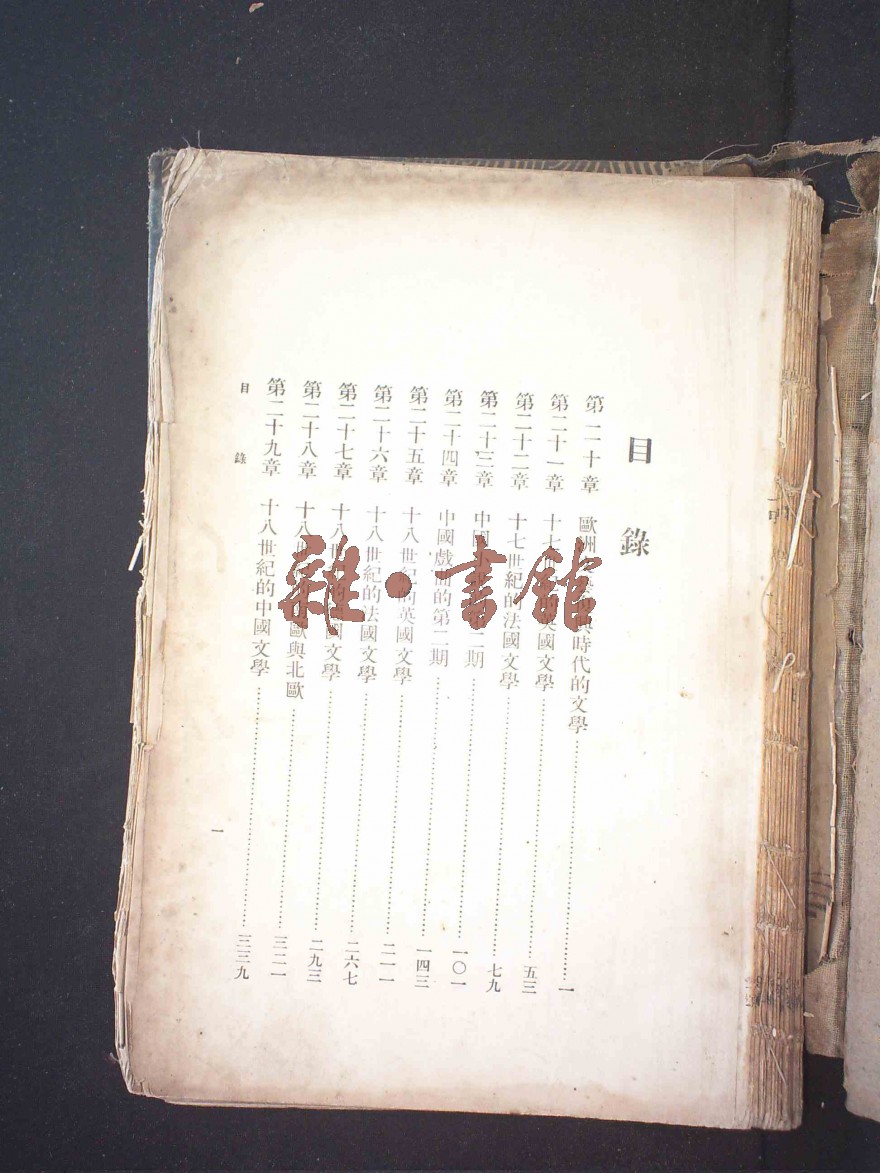 目錄
第二十章 歐洲時代的文學⋯⋯一
第二十一章 十七世國文學⋯⋯五三
第二十二章 十七世紀的法國文學⋯⋯七九
第二十三章 中國二期⋯⋯一〇一
第二十四章 中國戲的第二期⋯⋯一四三
第二十五章 十八世紀英國文學⋯⋯二一一
第二十六章 十八世紀的法國文學⋯⋯二六七
第二十七章 十八世國文學⋯⋯二九三
第二十八章 十八世歐與北歐⋯⋯三二一
第二十九章 十八世紀的中國文學⋯⋯三三九
目錄
一
雜·書館